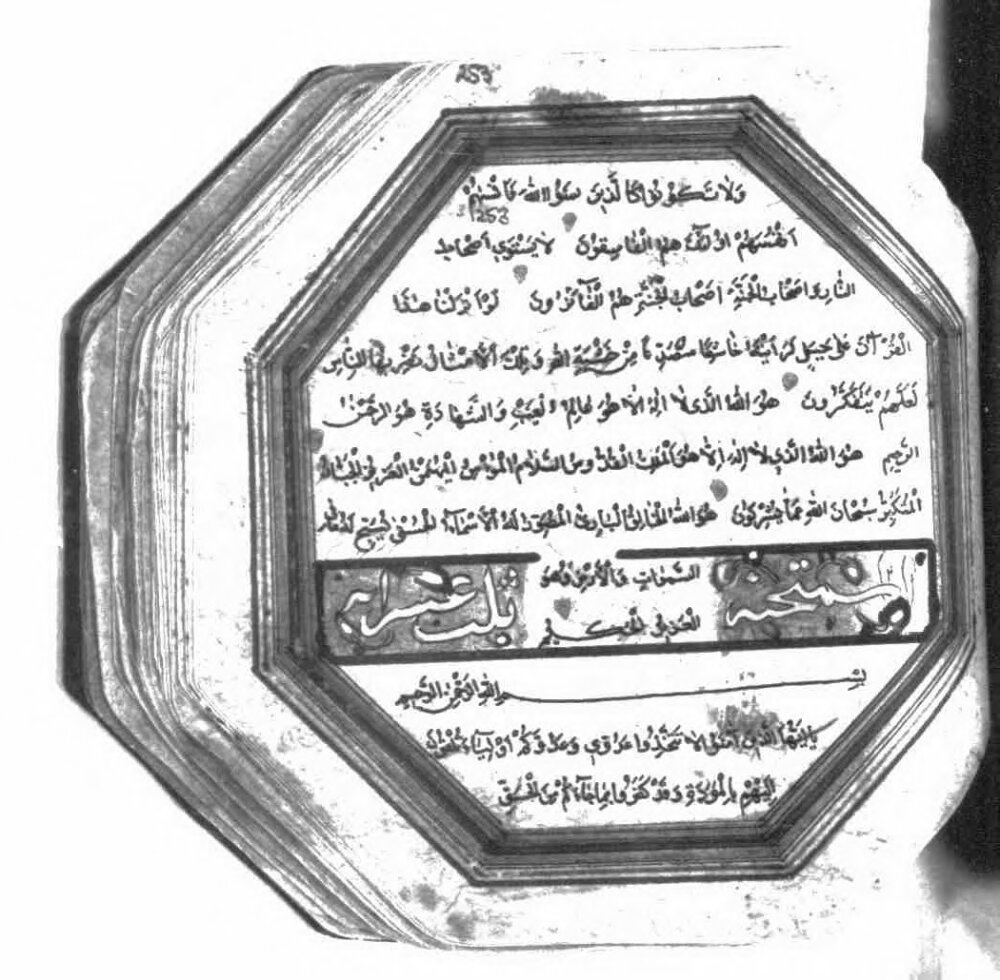 253
ولا تكونوا كالذين نسوا الله فانسيهم
253
انفسهم اولئك هم الفاسقون لا يستوي اصحاب
النار واصحاب الجنة اصحاب الجنة هم الفآئزون لو انزلنا هذا
القرآن على جبل لرأيته خاشعا متصدعا من خشية الله وتلك الامثال نضربها للناس
لعلهم يتفكرون هو الله الذى لا اله الا هو عالم الغيب والشهادة هو الرحمن
الرحيم هو الله الذي لا اله الا هو الملك القدوس السلام المؤمن المهيمن العزيز الجبار
المتكبر سبحان الله عما يشركون هو الله الخالق البارئ المصور له الاسمآء الحسنى يسبح له ما في
السموات والأرض وهو
العزيز الحكيم
ممتحنة
ثلث عشر اية
بسم الله الرحمن الرحيم
يا ايها الذين آمنوا لا تتخذوا عدوي وعدوكم اولياء تلقون
اليهم بالمودة وقد كفروا بما جآءكم من الحق